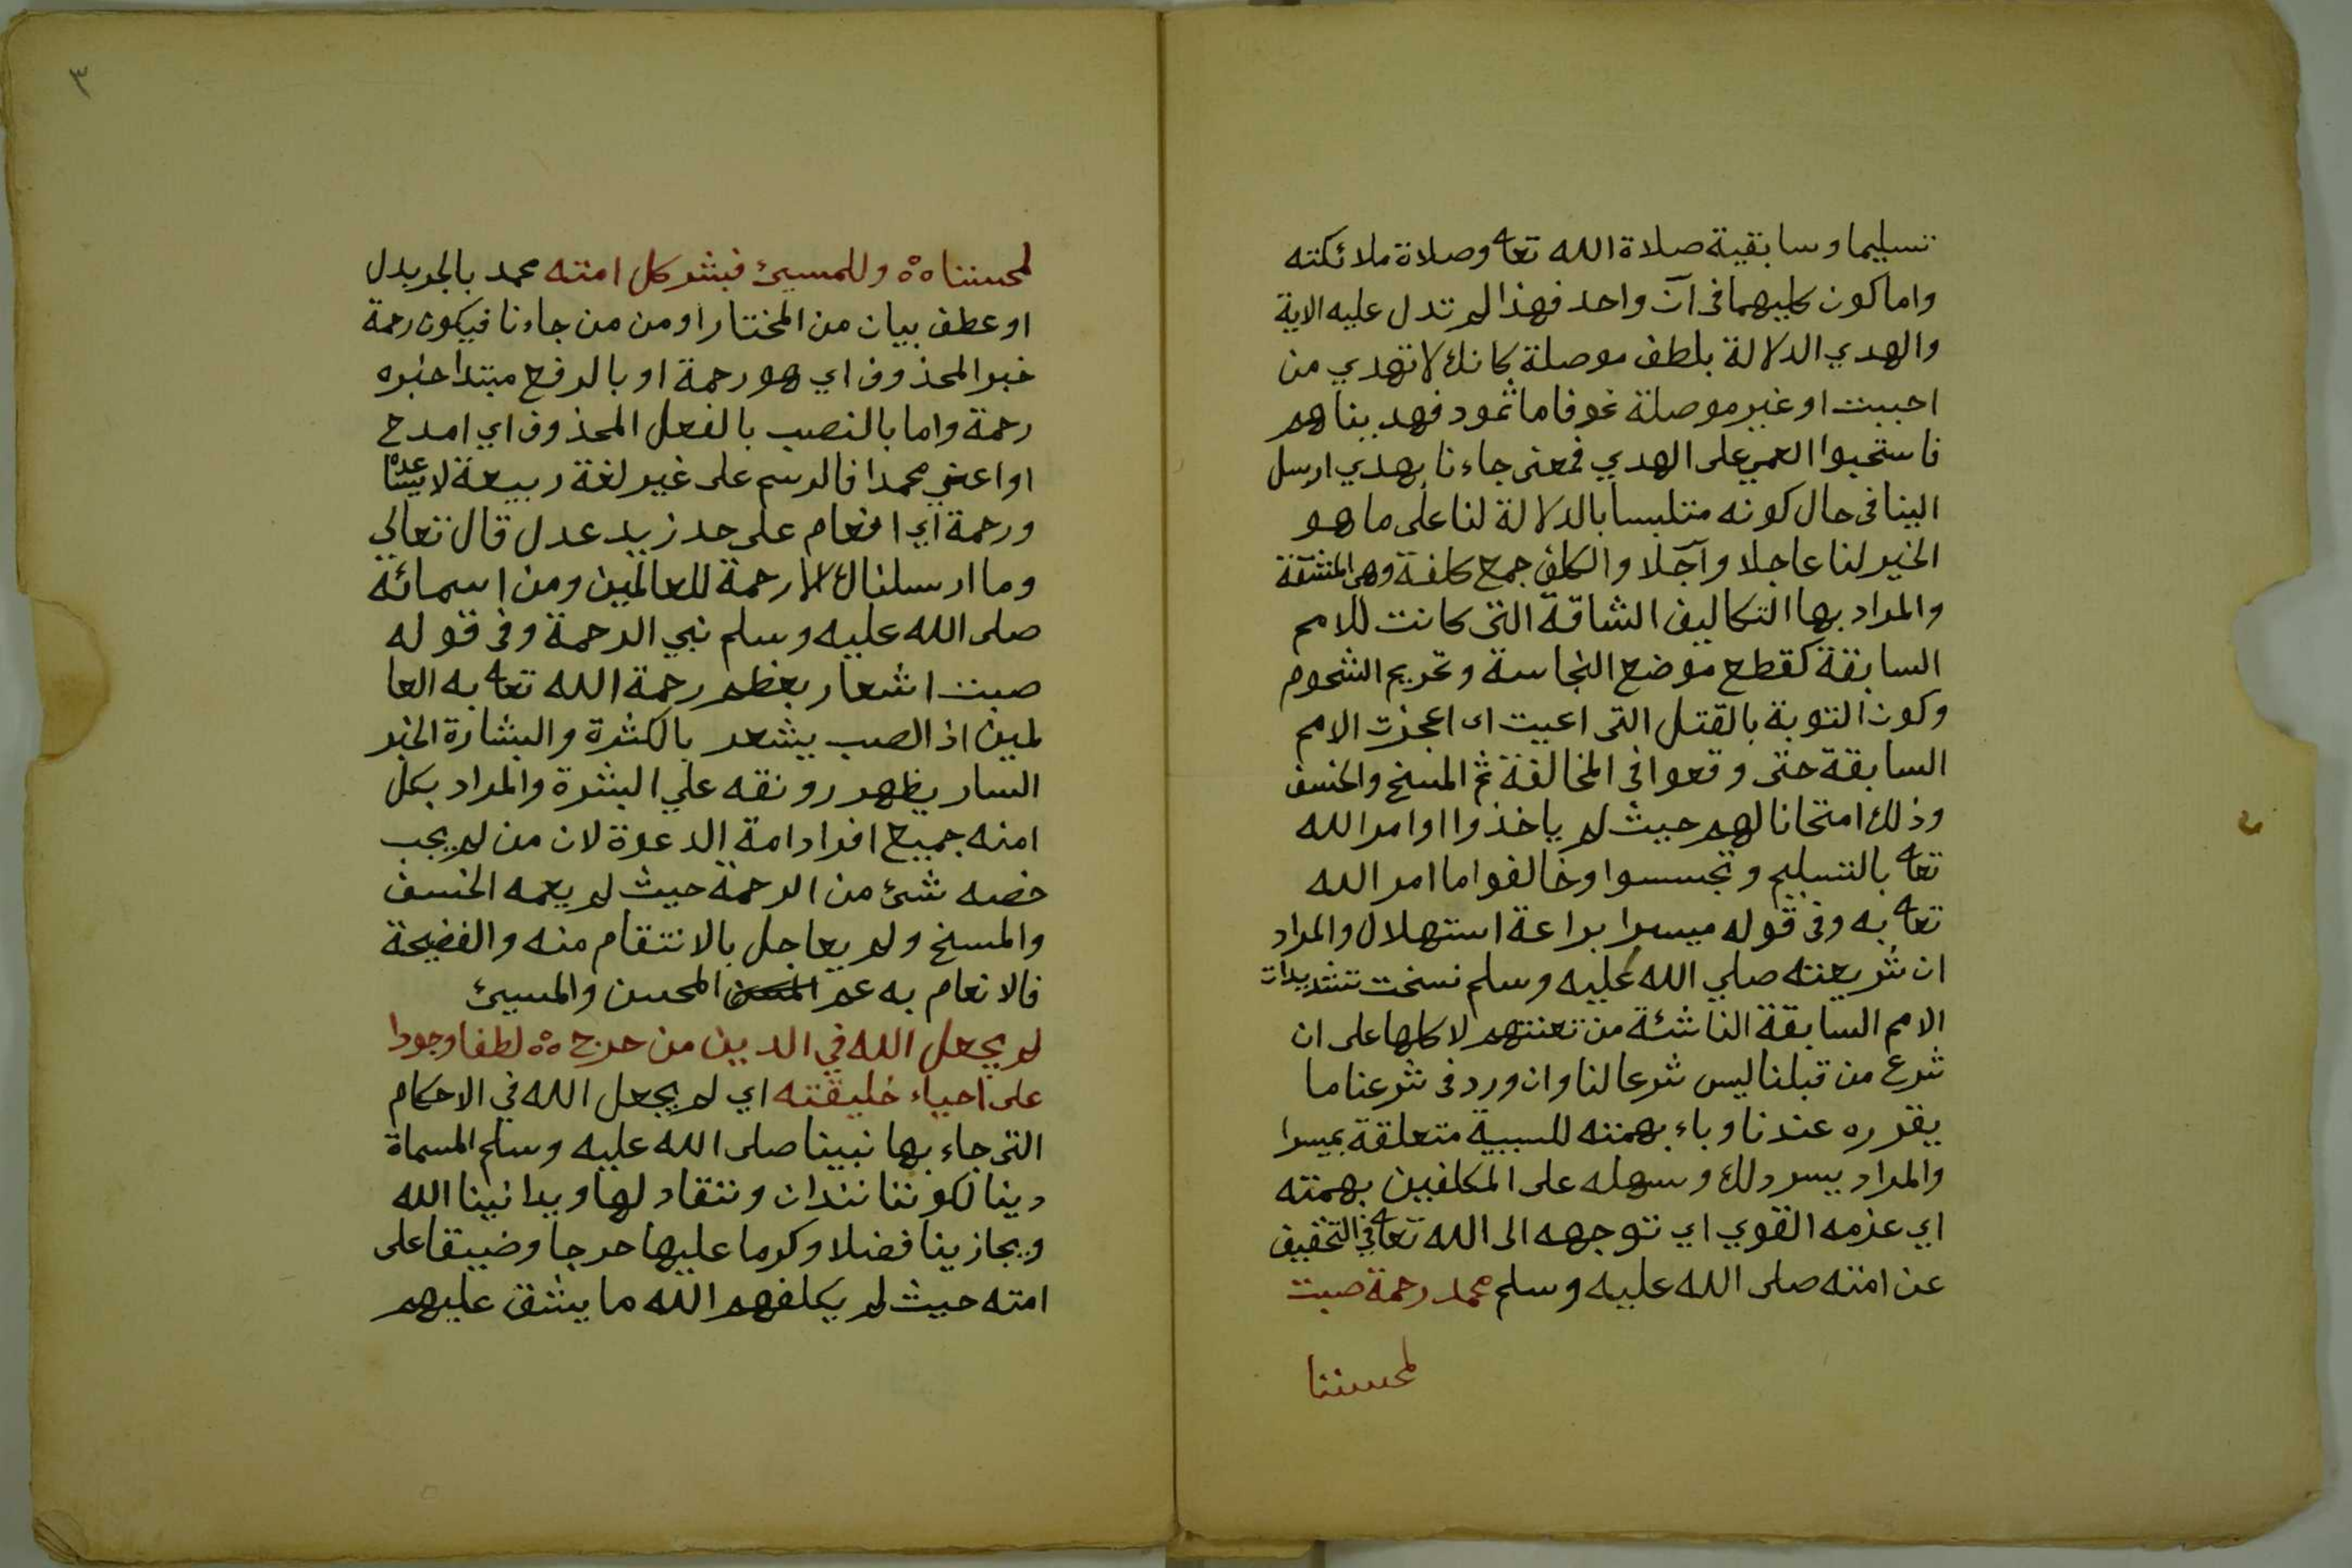 تسليما وسابقية صلاة الله تعا وصلاة ملائكته
واما كون كليهما فى آن واحد فهذا لم تدل عليه الاية
والهدي الدلالة بلطف موصلة كانك لا تهدي من
احببت او غير موصلة نحو فاما ثمود فهديناهم
فاستحبوا العمى على الهدي فمعنى جاءنا بهدي ارسل
الينا فى حال كونه متلبسا بالدلالة لنا على ما هو
الخير لنا عاجلا وآجلا والكلف جمع كلفة وهى المشقة
والمراد بها التكاليف الشاقة التى كانت للامم
السابقة كقطع موضع النجاسة وتحريم الشحوم
وكون التوبة بالقتل التى اعيت اى اعجزت الامم
السابقة حتى وقعوا فى المخالفة ثم المسخ والخسف
وذلك امتحانا لهم حيث لم ياخذوا اوامر الله
تعا بالتسليم وتجسسوا وخالفوا ما امر الله
تعا به وفى قوله ميسرا براعة استهلال والمراد
ان شريعته صلي الله عليه وسلم نسخت تشديدات
الامم السابقة الناشئة من تعنتهم لا كلها على ان
شرع من قبلنا ليس شرعا لنا وان ورد فى شرعنا ما
يقرره عندنا وباء بهمته للسببية متعلقة بميسرا
والمراد يسر دلك وسهله على المكلفين بهمته
اي عزمه القوي اي توجهه الى الله تعا في التخفيف
عن امته صلى الله عليه وسلم محمد رحمة صبت
لمحسننا
٣
لمحسننا ٥٥ وللمسيئ فبشر كل امته محمد بالجر بدل
او عطف بيان من المختار او من من جاءنا فيكون رحمة
خبر المحذوف اي هو رحمة او بالرفع مبتدا خبره
رحمة واما بالنصب بالفعل المحذوف اي امدح
او اعني محمدا فالرسم على غير لغة ربيعة لا يساعده
ورحمة اي انعام على حد زيد عدل قال تعالي
وما ارسلناك الا رحمة للعالمين ومن اسمائه
صلى الله عليه وسلم نبي الرحمة وفى قوله
صبت اشعار بعظم رحمة الله تعا به العا
لمين اذ الصب يشعر بالكثرة والبشارة الخبر
السار يظهر رونقه علي البشرة والمراد بكل
امته جميع افراد امة الدعوة لان من لم يجب
خصه شئ من الرحمة حيث لم يعمه الخسف
والمسخ ولم يعاجل بالانتقام منه والفضيحة
فالانعام به عم المحسن والمسيئ
لم يجعل الله في الدين من حرج ٥٥ لطفا وجودا
على احياء خليقته اي لم يجعل الله في الاحكام
التى جاء بها نبينا صلى الله عليه وسلم المسماة
دينا لكوننا نندان وننقاد لها ويدانينا الله
ويجازينا فضلا وكرما عليها حرجا وضيقا على
امته حيث لم يكلفهم الله ما يشق عليهم